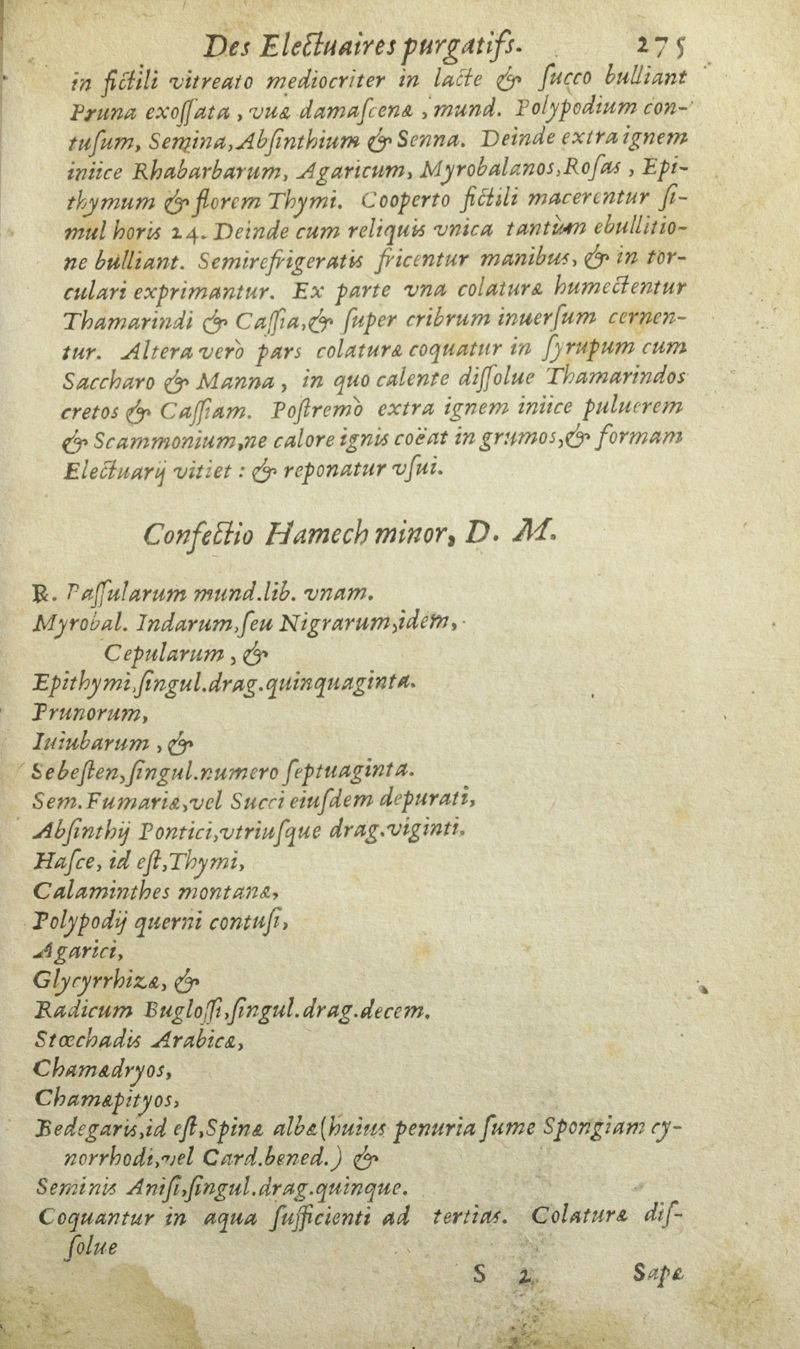 Des Electuaires purgatifs. 275
in fictili vitreato mediocriter in lacte & succo bulliant
Pruna exossata, vuæ damascenæ, mund. Polypodium con-
tusum, Semina, Absinthium & Senna. Deinde extra ignem
iniice Rhabarbarum, Agaricum, Myrobalanos, Rosas, Epi-
thymum & florem Thymi. Cooperto fictili macerentur si-
mul horis 24. Deinde cum reliquis vnica tantùm ebullitio-
ne bulliant. Semirefrigeratis fricentur manibus, & in tor-
culari exprimantur. Ex parte vna colaturæ humectentur
Thamarindi & Cassia, & super cribrum inuersum cernen-
tur. Altera verò pars colaturæ coquatur in syrupum cum
Saccharo & Manna, in quo calente dissolue Thamarindos
cretos & Cassiam. Postremò extra ignem iniice puluerem
& Scammonium, ne calore ignis coëat in grumos, & formam
Electuarij vitiet : & reponatur vsui.
Confectio Hamech minor, D. M.
℞. Passularum mund. lib. vnam.
Myrobal. Indarum, seu Nigrarum, idem,
Cepularum, &
Epithymi, singul. drag. quinquaginta.
Prunorum,
Iuiubarum, &
Sebesten, singul. numero septuaginta.
Sem. Fumariæ, vel Succi eiusdem depurati,
Absinthij Pontici, vtriusque drag. viginti.
Hasce, id est, Thymi,
Calaminthes montanæ,
Polypodij querni contusi,
Agarici,
Glycyrrhizæ, &
Radicum Buglossi, singul. drag. decem.
Stœchadis Arabicæ,
Chamædryos,
Chamæpityos,
Bedegaris, id est, Spinæ albæ (huius penuria sume Spongiam cy-
norrhodi, vel Card. bened.) &
Seminis Anisi, singul. drag. quinque.
Coquantur in aqua sufficienti ad tertias. Colaturæ dis-
solue
S 2 Sapæ